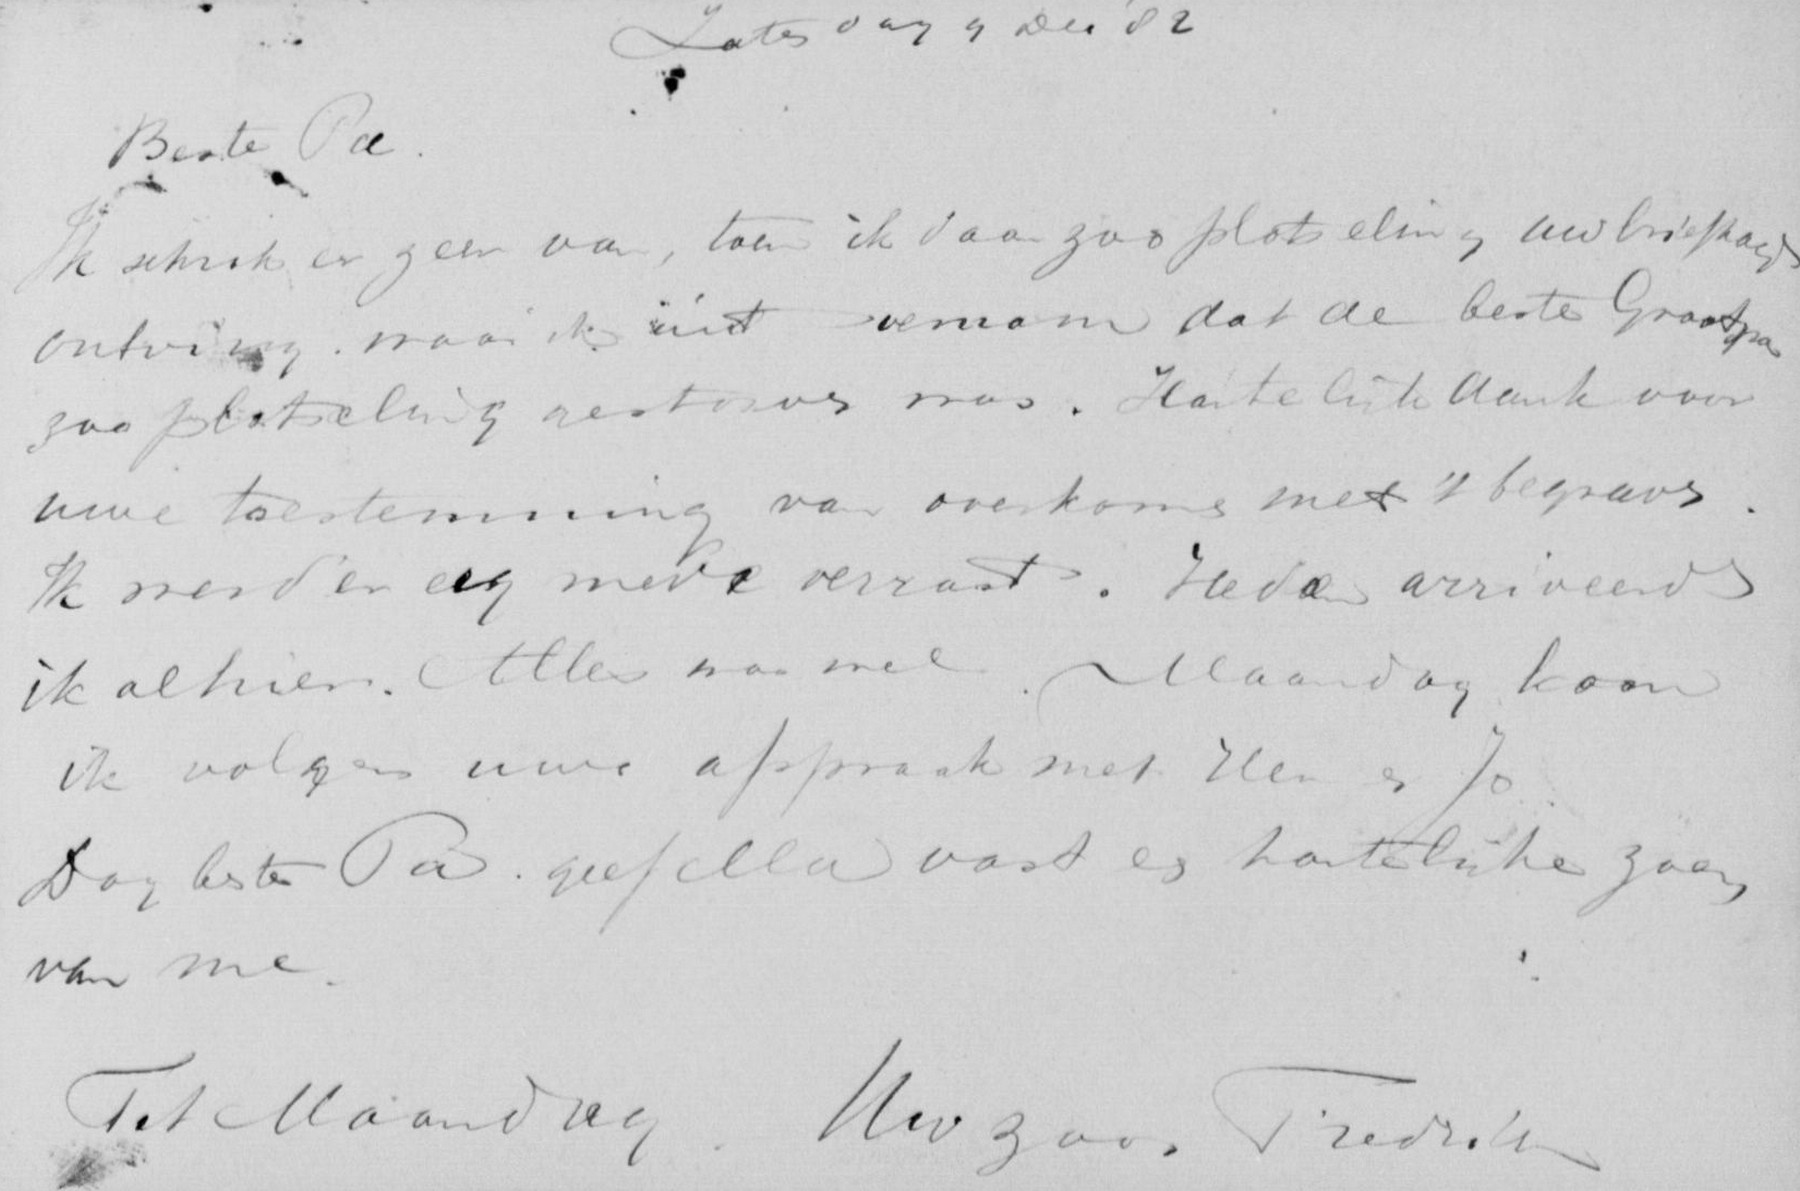 Zaterdag 9 Dec '82
Beste Pa.
Ik schrok er zeer van, toen ik daar zoo plotseling uw briefkaart
ontving. waar ik uit vernam dat de beste Grootpa
zoo plotseling gestorven was. Hartelijk dank voor
uwe toestemming van overkoms met 't begraven.
Ik werd er erg mede verrast. Heden arriveerde
ik alhier. Alles was wel. Maandag koom
ik volgens uwe afspraak met Hen en Jo.
Dag beste Pa. geef Ella vast en hartelijke zoen
van me.
Tot Maandag. Uw zoon Fredrik